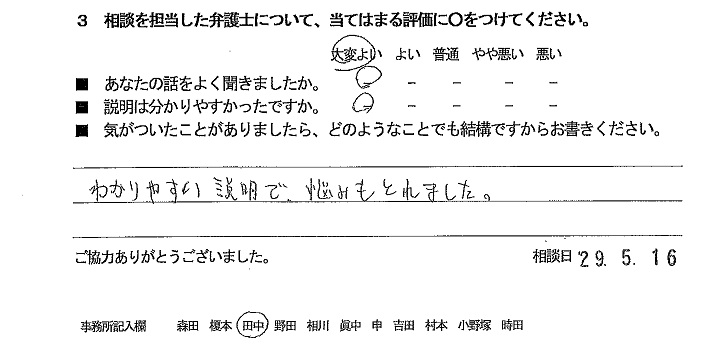 3 相談を担当した弁護士について、当てはまる評価に〇をつけてください。
大変よい よい 普通 やや悪い 悪い
■ あなたの話をよく聞きましたか。 - - - - -
■ 説明は分かりやすかったですか。 - - - - -
■ 気がついたことがありましたら、どのようなことでも結構ですからお書きください。
わかりやすい説明で、悩みもとれました。
ご協力ありがとうございました。 相談日 '29. 5. 16
事務所記入欄 森田 榎本 田中 野田 相川 眞中 申 吉田 村本 小野塚 時田